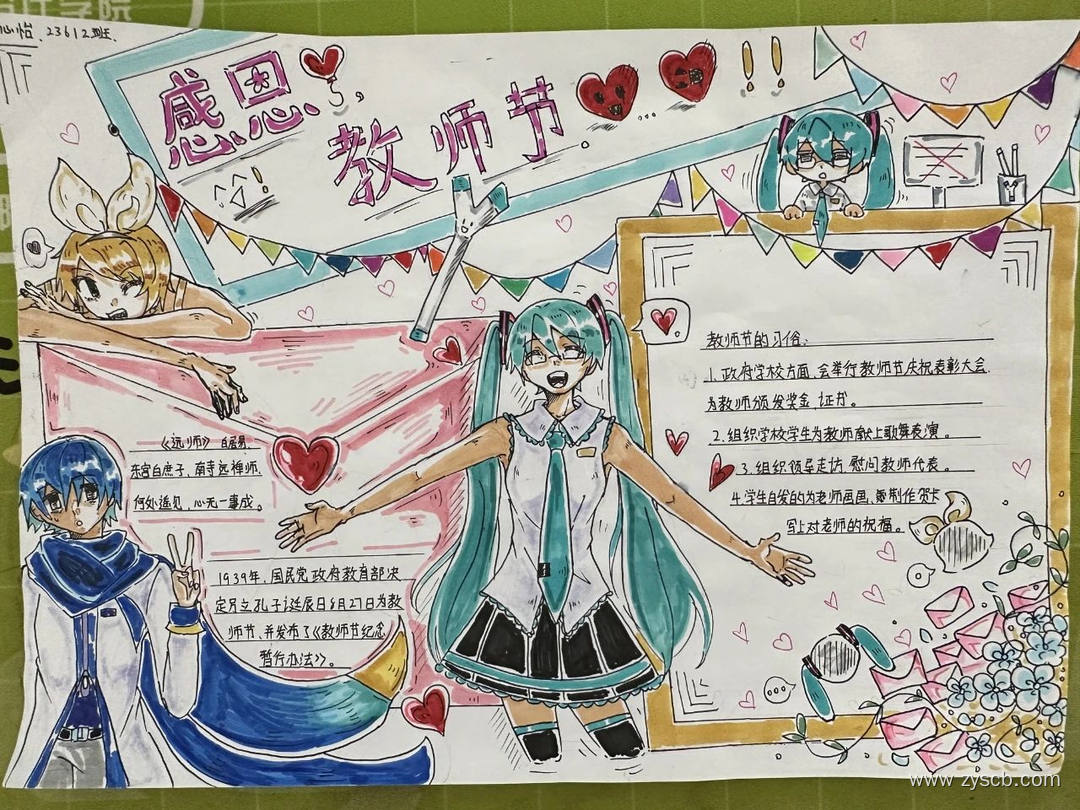 心怡 23612班
感恩
教师节。
《远师》 白居易
东宫白庶子、南寺远禅师.
何处遥见、心无一事成。
1939年、国民党政府教育部决
定另立孔子诞辰日8月27日为教
师节、并发布了《教师节纪念
暂行办法》。
教师节的习俗:
1.政府学校方面、会举行教师节庆祝表彰大会.
为教师颁发奖金、证书。
2.组织学校学生为教师献上歌舞表演。
3.组织领导走访、慰问教师代表。
4.学生自发的为老师画画、制作贺卡
写上对老师的祝福。
www.zyscb.com